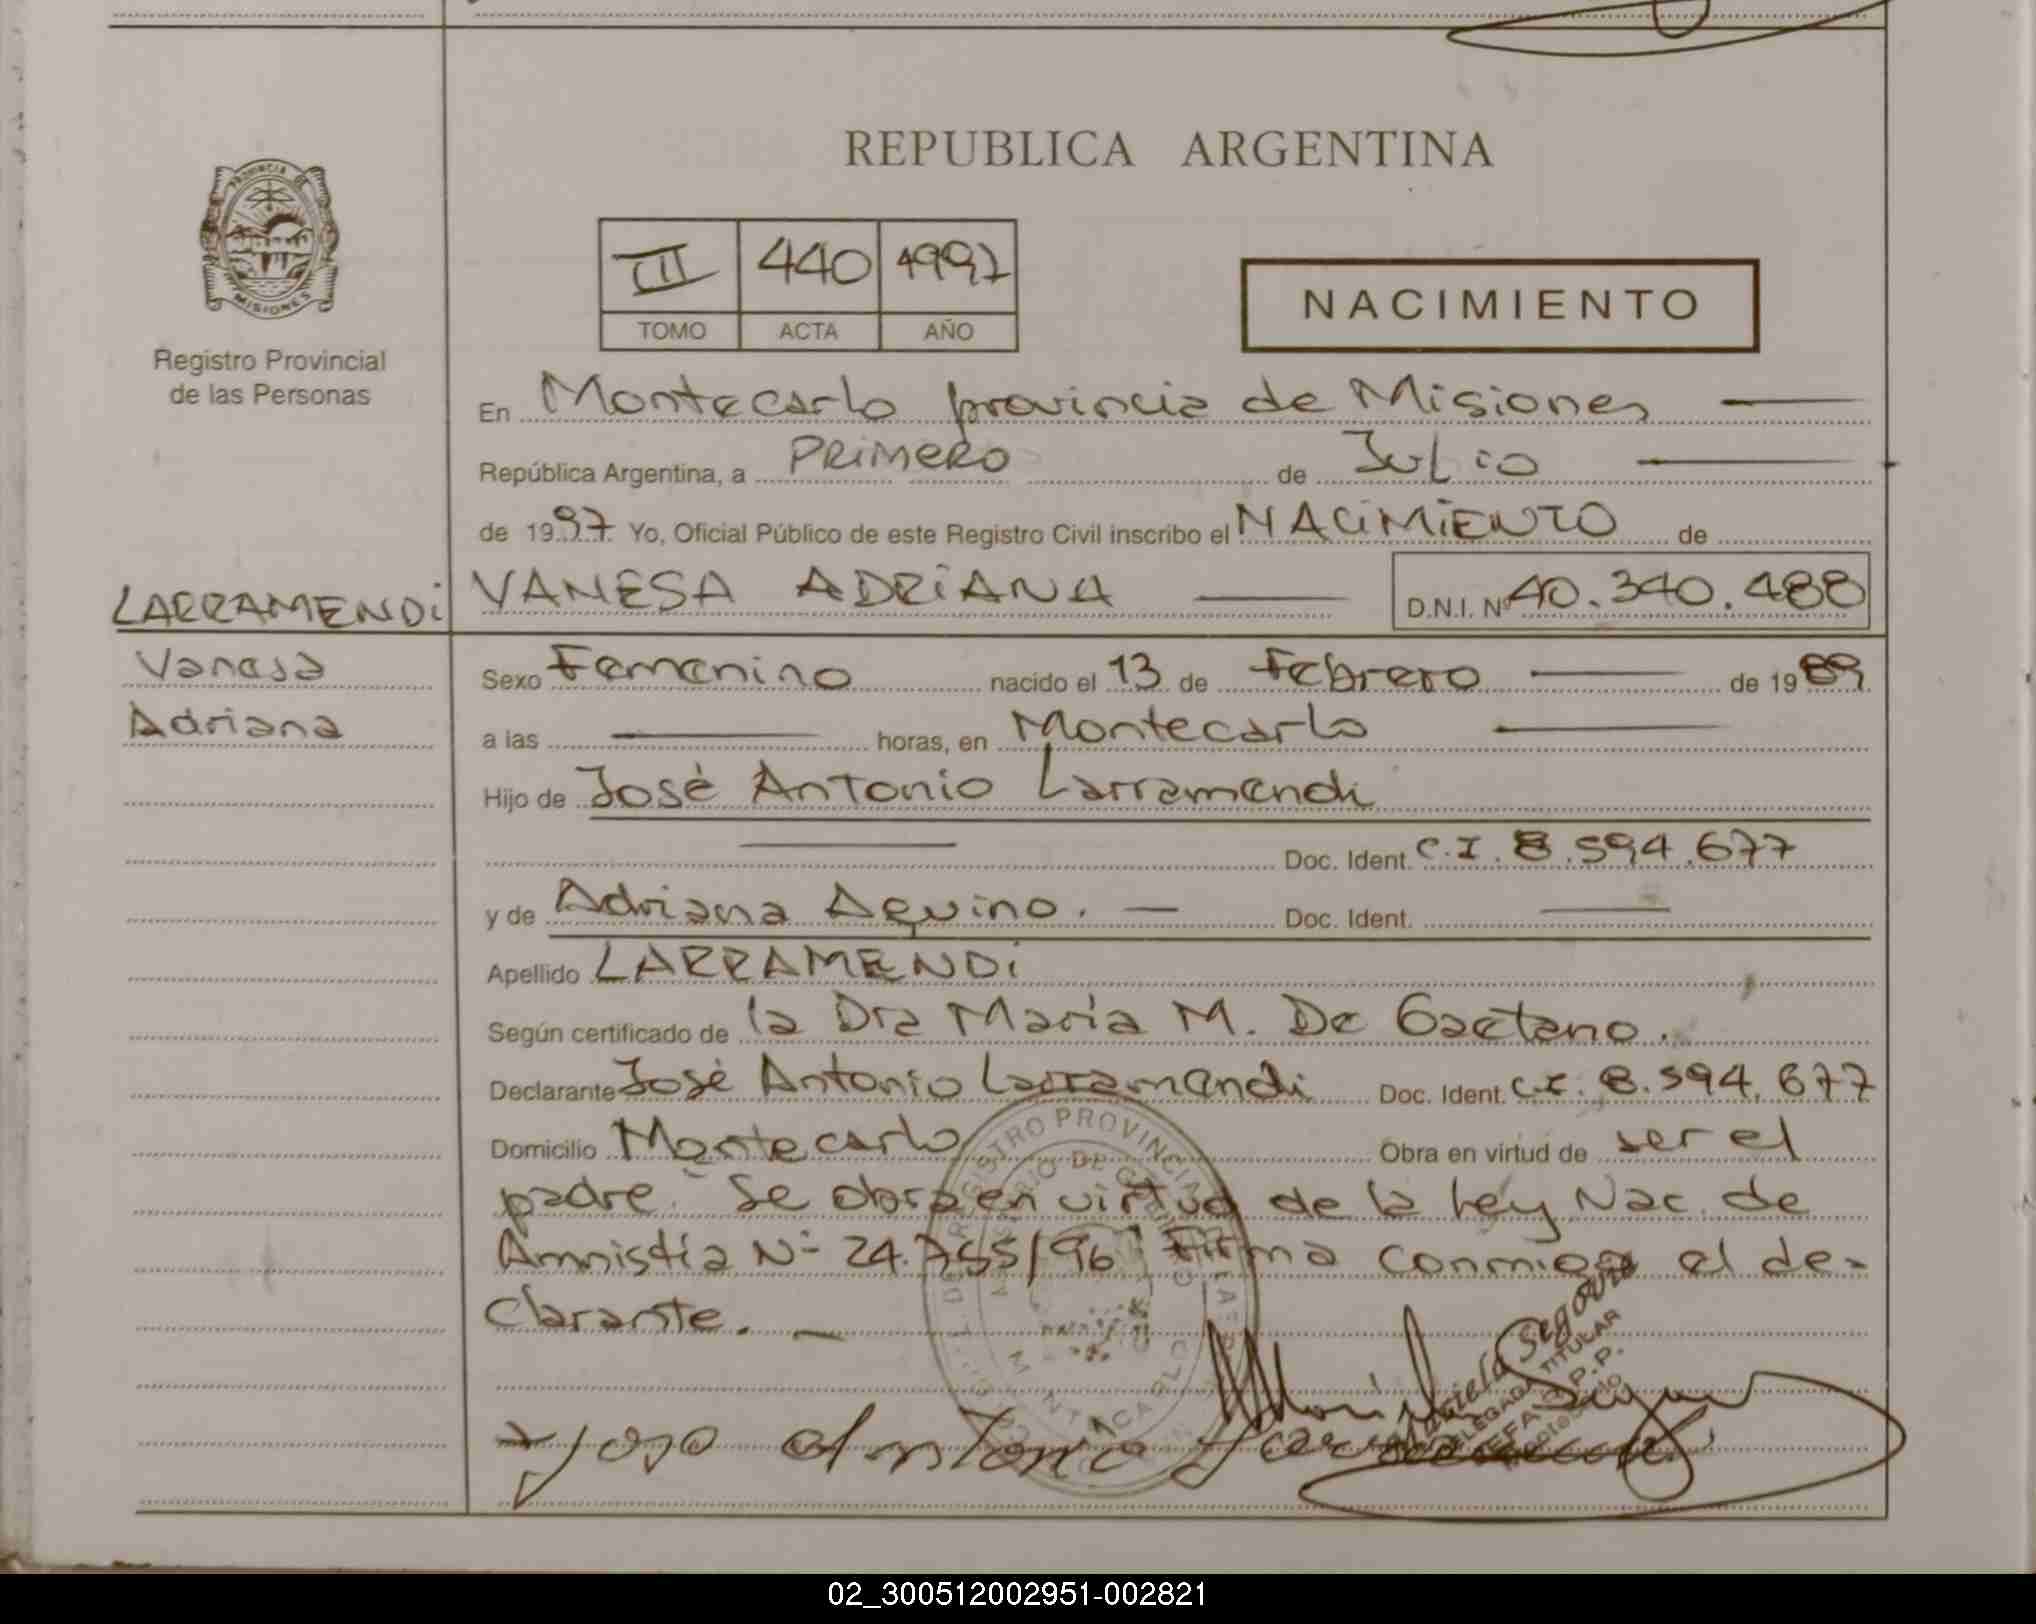 REPUBLICA ARGENTINA
PROVINCIA DE
MISIONES
Registro Provincial
de las Personas
III 440 1997
TOMO ACTA AÑO
NACIMIENTO
En Montecarlo provincia de Misiones
República Argentina, a PRIMERO de Julio
de 1997 Yo, Oficial Público de este Registro Civil inscribo el NACIMIENTO de
LARRAMENDI VANESA ADRIANA D.N.I. Nº 40.340.488
Vanesa
Adriana
Sexo Femenino nacido el 13 de Febrero de 1989
a las horas, en Montecarlo
Hijo de José Antonio Larramendi
Doc. Ident. C.I. 8.594.677
y de Adriana Aquino. Doc. Ident.
Apellido LARRAMENDI
Según certificado de la Dra Maria M. De Gaetano.
Declarante José Antonio Larramendi Doc. Ident. C.I. 8.594.677
Domicilio Montecarlo Obra en virtud de ser el
padre. "Se obra en virtud de la Ley Nac. de
Amnistía Nº 24.755/96" Firma conmigo el de-
clarante.
REGISTRO PROVINCIAL
Segovia
DELEGADA TITULAR
Jose Antonio
02_300512002951-002821